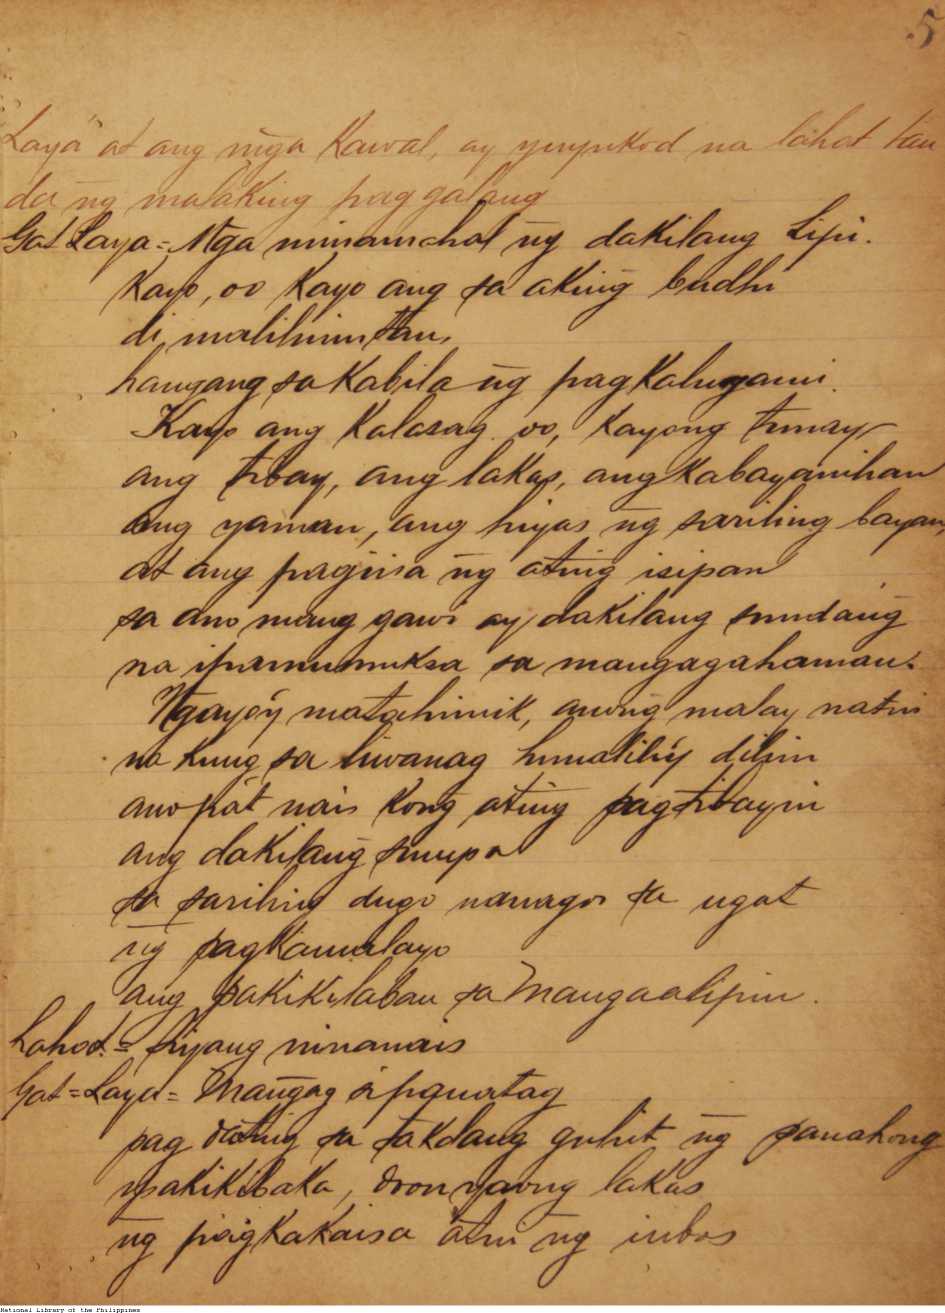 5
Laya at ang mga Kawal, ay yuyukod na lahat tan
da ng malaking paggalang
Gat Laya = Mga minamahal ng dakilang Lipi.
Kayo, oo Kayo ang sa aking budhi
di malilimutan,
hangang sa Kabila ng pagkalugami.
Kayo ang Kalasag oo, Kayong tunay
ang tibay, ang lakas, ang Kabayanihan
ang yaman, ang hiyas ng sariling bayan,
at ang pagiisa ng ating isipan
sa ano mang gawi ay dakilang sundang
na ipamumuksa sa mangagahaman.
Ngayo'y matahimik, anong malay natin
na kung sa liwanag humalili'y dilim
ano pa't nais Kong ating pagtibayin
ang dakilang sumpa
sa sariling dugo nanagos sa ugat
ng pagkamulayo
ang pakikilaban sa Mangaalipin.
Lahat. = Siyang ninanais
Gat = Laya = Mangag sipanatag
pag dating sa takdang guhit ng panahong
makikibaka, doon yaong lakas
ng pagkakaisa atin ng iubos
National Library of the Philippines